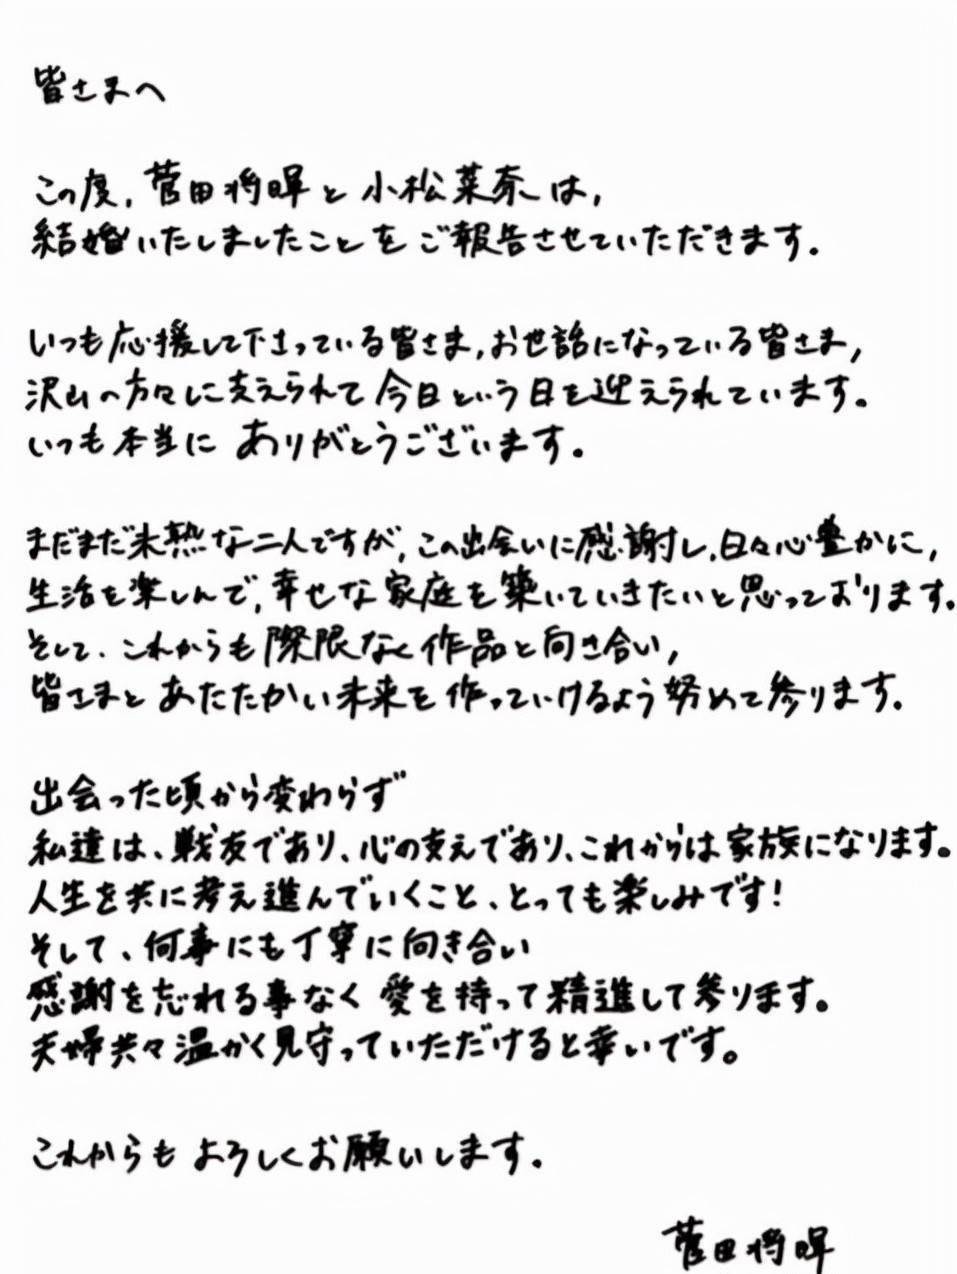 皆さまへ
この度、菅田将暉と小松菜奈は、
結婚いたしましたことをご報告させていただきます。
いつも応援して下さっている皆さま、お世話になっている皆さま、
沢山の方々に支えられて今日という日を迎えられています。
いつも本当にありがとうございます。
まだまだ未熟な二人ですが、この出会いに感謝し、日々心豊かに、
生活を楽しんで、幸せな家庭を築いていきたいと思っております。
そして、これからも際限なく作品と向き合い、
皆さまとあたたかい未来を作っていけるよう努めて参ります。
出会った頃から変わらず
私達は、戦友であり、心の支えであり、これからは家族になります。
人生を共に考え進んでいくこと、とっても楽しみです!
そして、何事にも丁寧に向き合い
感謝を忘れる事なく愛を持って精進して参ります。
夫婦共々温かく見守っていただけると幸いです。
これからもよろしくお願いします。
菅田将暉